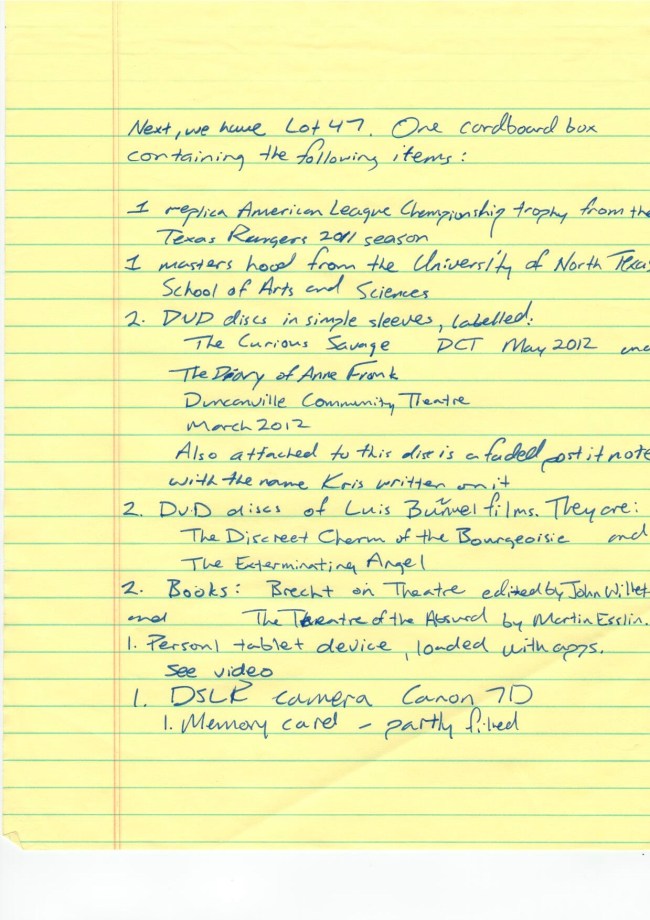 Next, we have Lot 47. One cardboard box
containing the following items:
1 replica American League Championship trophy from the
Texas Rangers 2011 season
1 masters hood from the University of North Texas
School of Arts and Sciences
2. DVD discs in simple sleeves, labelled:
The Curious Savage DCT May 2012 and
The Diary of Anne Frank
Duncanville Community Theatre
March 2012
Also attached to this disc is a faded post it note
with the name Kris written on it
2. DVD discs of Luis Buñuel films. They are:
The Discreet Charm of the Bourgeoisie and
The Exterminating Angel
2. Books: Brecht on Theatre edited by John Willet
and The Theatre of the Absurd by Martin Esslin.
1. Personl tablet device, loaded with apps.
See video
1. DSLR camera Canon 7D
1. Memory card - partly filled